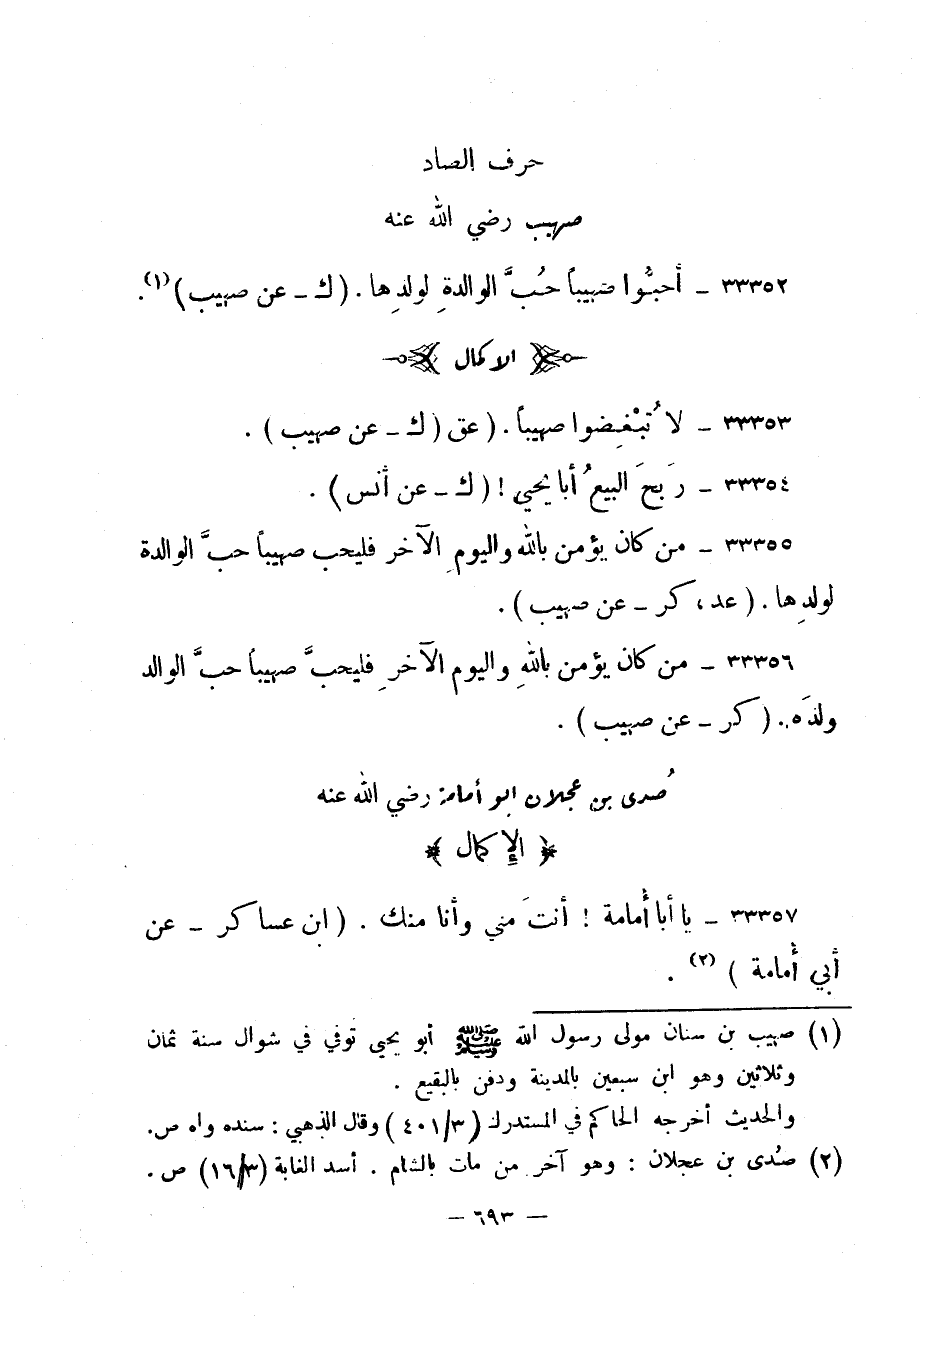 حرف الصاد
صهيب رضي الله عنه
٣٣٣٥٢ ـ أحبُّوا صهيباً حُبَّ الوالدةِ لولدِها . ( ك ـ عن صهيب )(١).
الاكمال
٣٣٣٥٣ ـ لا تُبْغِضوا صهيباً . ( عق ( ك ـ عن صهيب ) .
٣٣٣٥٤ ـ رَبحَ البيعُ أبا يحيى ! ( ك ـ عن أنس ) .
٣٣٣٥٥ ـ من كان يؤمن بالله واليومِ الآخر فليحب صهيباً حبَّ الوالدة
لولدِها . ( عد ، كر ـ عن صهيب ) .
٣٣٣٥٦ ـ من كان يؤمن باللهِ واليوم الآخرِ فليحبَّ صهيباً حبَّ الوالد
ولدَه . ( كر ـ عن صهيب ) .
صُدى بن عجلان ابو أمامة رضي الله عنه
﴿ الإكمال ﴾
٣٣٣٥٧ ـ يا أبا أُمامة ! أنتَ مني وأنا منك . ( ابن عساكر ـ عن
أبي أُمامة ) (٢) .
(١) صهيب بن سنان مولى رسول الله ﷺ أبو يحيى توفي في شوال سنة ثمان
وثلاثين وهو ابن سبعين بالمدينة ودفن بالبقيع .
والحديث أخرجه الحاكم في المستدرك (٤٠١/٣) وقال الذهبي : سنده واه ص.
(٢) صُدى بن عجلان : وهو آخر من مات بالشام . أسد الغابة (١٦/٣) ص .
ـ ٦٩٣ ـ